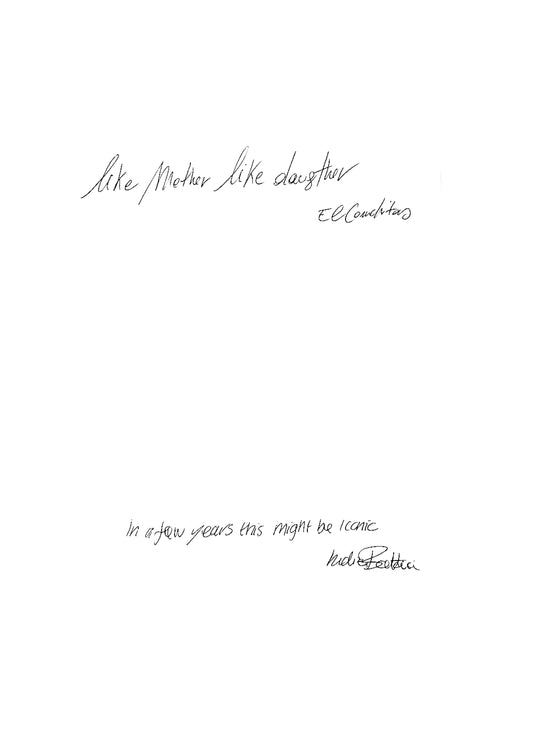 like Mother like daugther
El
In a few years this might be Iconic